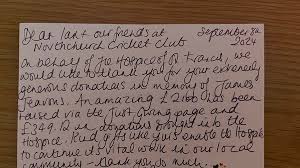 Dear Ian + our friends at September 
Northchurch Cricket Club 2024
On behalf of the Hospice of St Francis, we
would like to thank you for your extremely
generous donations in memory of James
Jeavons. An amazing £2100 has been
raised via the Just Giving page and
£349.12 in donations brought into the
Hospice. Kind gifts like yours enable the Hospice
to continue its vital work in our local
community - Thank you so much